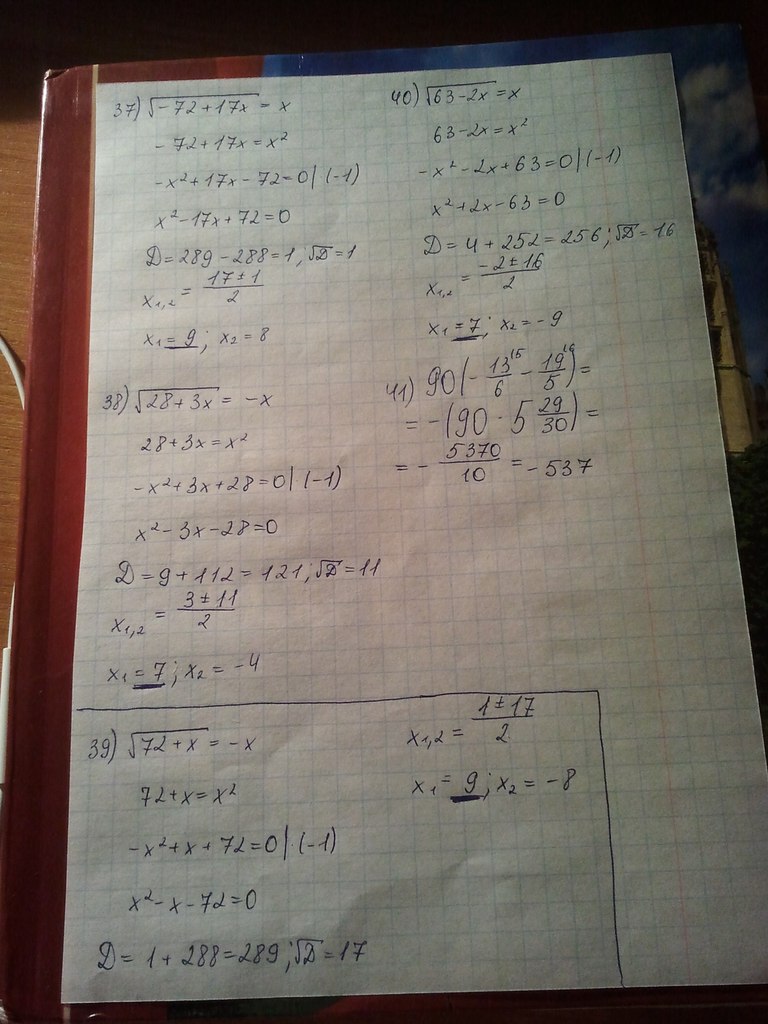 37) √-72+17x = x
-72+17x=x²
-x²+17x-72=0|(-1)
x²-17x+72=0
D=289-288=1; √D=1
x₁,₂ = (17±1)/2
x₁=9; x₂=8
38) √28+3x = -x
28+3x=x²
-x²+3x+28=0|(-1)
x²-3x-28=0
D=9+112=121; √D=11
x₁,₂ = (3±11)/2
x₁=7; x₂=-4
40) √63-2x=x
63-2x=x²
-x²-2x+63=0|(-1)
x²+2x-63=0
D=4+252=256; √D=16
x₁,₂ = (-2±16)/2
x₁=7; x₂=-9
41) 90(-13/6 - 19/5)=
=-(90·5 29/30)=
=-5370/10=-537
39) √72+x = -x
72+x=x²
-x²+x+72=0|(-1)
x²-x-72=0
D=1+288=289; √D=17
x₁,₂ = (1±17)/2
x₁=9; x₂=-8